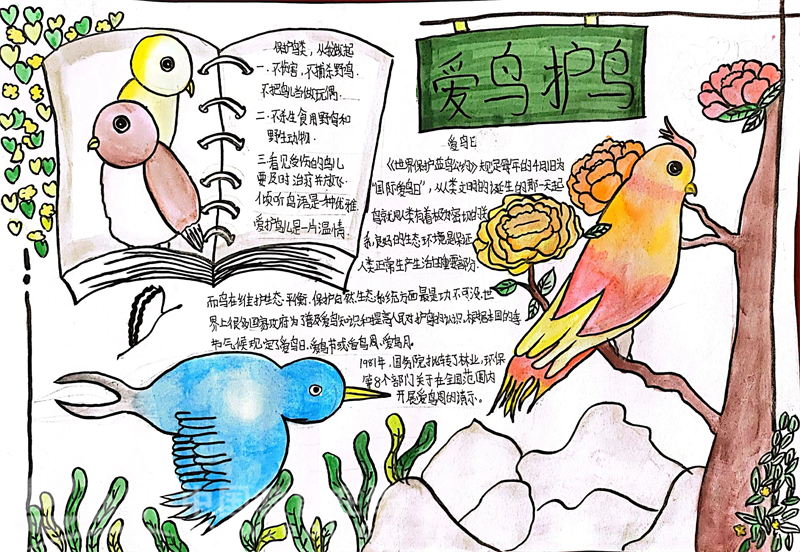 爱鸟护鸟
保护鸟类，从我做起
一.不伤害，不捕杀野鸟.
不把鸟儿当做玩偶.
二.不杀生食用野鸟和
野生动物.
三看见受伤的鸟儿
要及时治疗并放飞.
倾听鸟语是一种优雅
爱护鸟儿是一片温情.
爱鸟日
《世界保护益鸟公约》规定每年的4月1日为
"国际爱鸟日"，从人类文明的诞生的那一天起
鸟就以人类有着极为密切的联
系，良好的生态环境是保证
人类正常生产生活的重要部分.
而鸟在维护生态平衡.保护自然生态系统方面最是功不可没.世
界上很多国家政府为了普及爱鸟知识和提高人民对护鸟的认识.根据本国的季
节气候规定了爱鸟日、爱鸟节或爱鸟周、爱鸟月.
1981年，国务院批转了林业、环保
等8个部门关于在全国范围内
开展爱鸟周的请示。